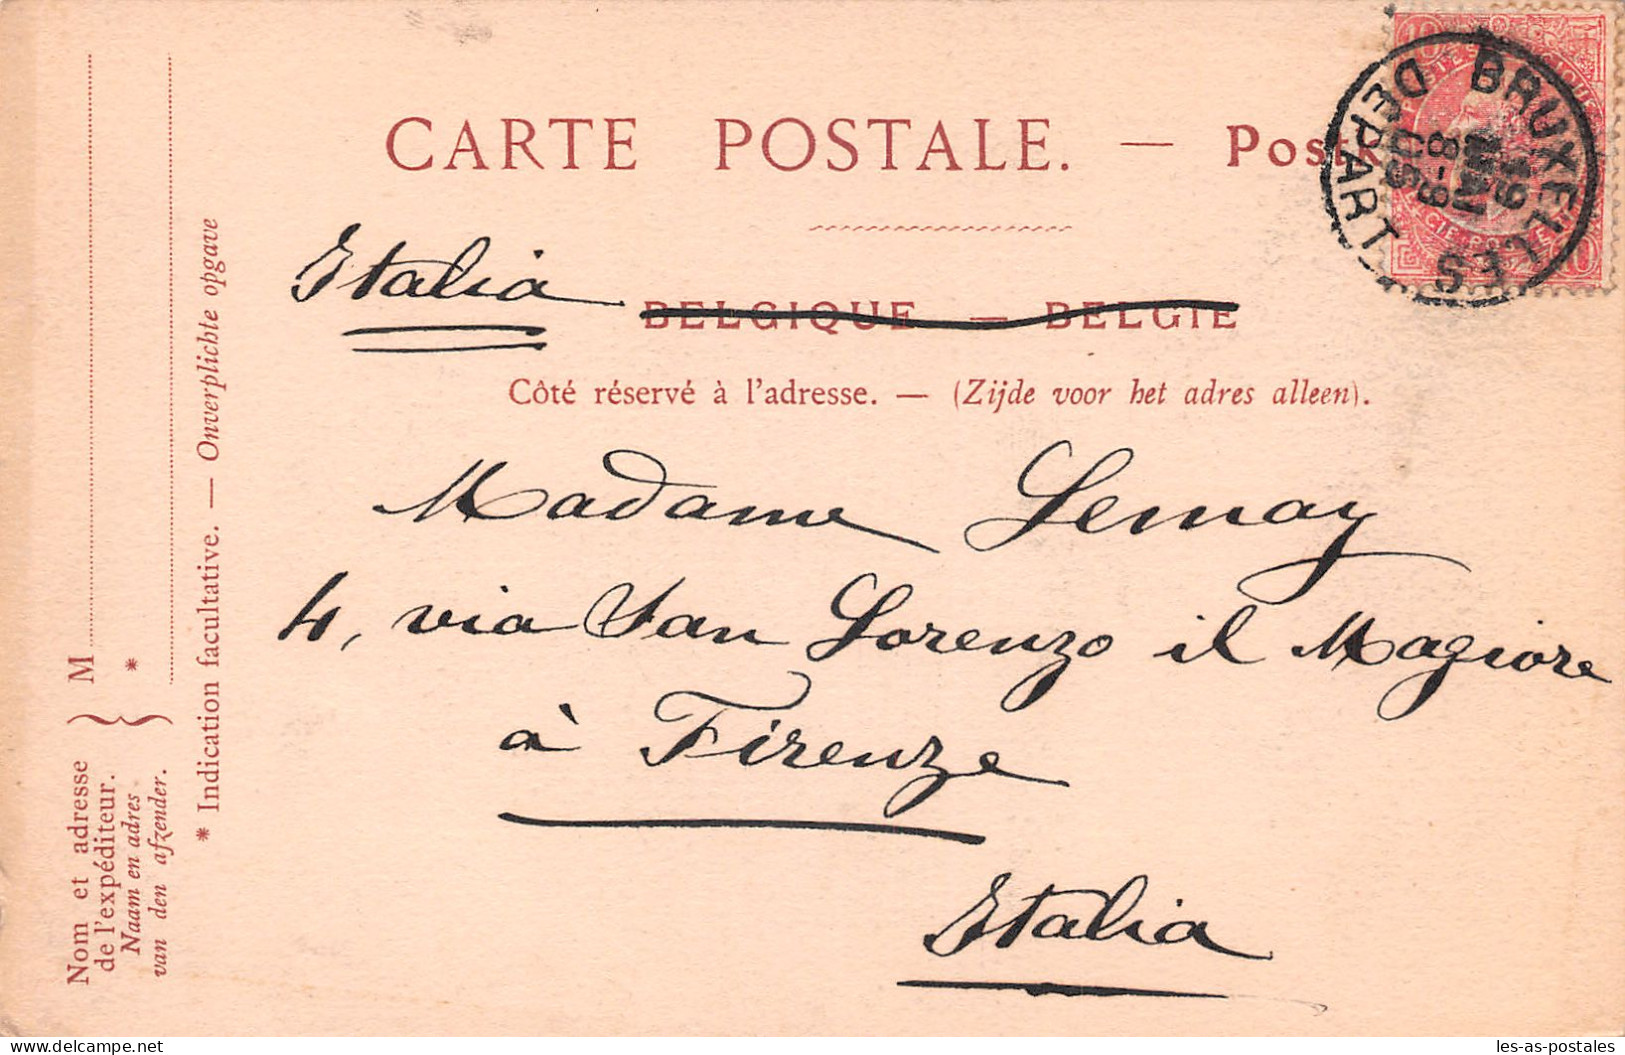 CARTE POSTALE. — Post
Italia
BELGIQUE — BELGIE
Côté réservé à l'adresse. — (Zijde voor het adres alleen).
Madame Lemay
4, via San Lorenzo il Magiore
à Firenze
Italia
Nom et adresse
de l'expéditeur.
Naam en adres
van den afzender.
M
*
* Indication facultative. — Onverplichte opgave
BRUXELLES
19
MAI
8-9
DEPART
10
10
delcampe.net
les-as-postales